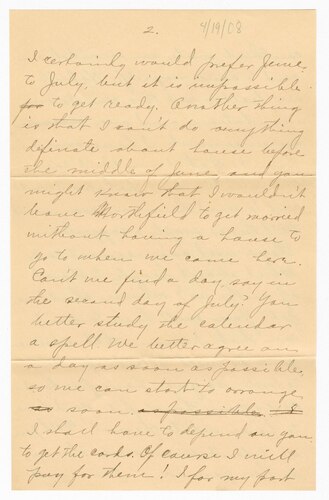 2.
4/19/08
I certainly would prefer June,
to July, but it is impossible
for to get ready. Another thing
is that I can't do anything
definate about house before
the middle of June and you
might know that I wouldn't
leave Northfield to get married
without having a house to
go to when we came here.
Can't we find a day say in
the second day of July? You
better study the calendar
a spell. We better agree on
a day as soon as possible,
so we can start to arrange
as soon. as possible. I
I shall have to depend on you
to get the cards. Of course I will
pay for them! I for my part